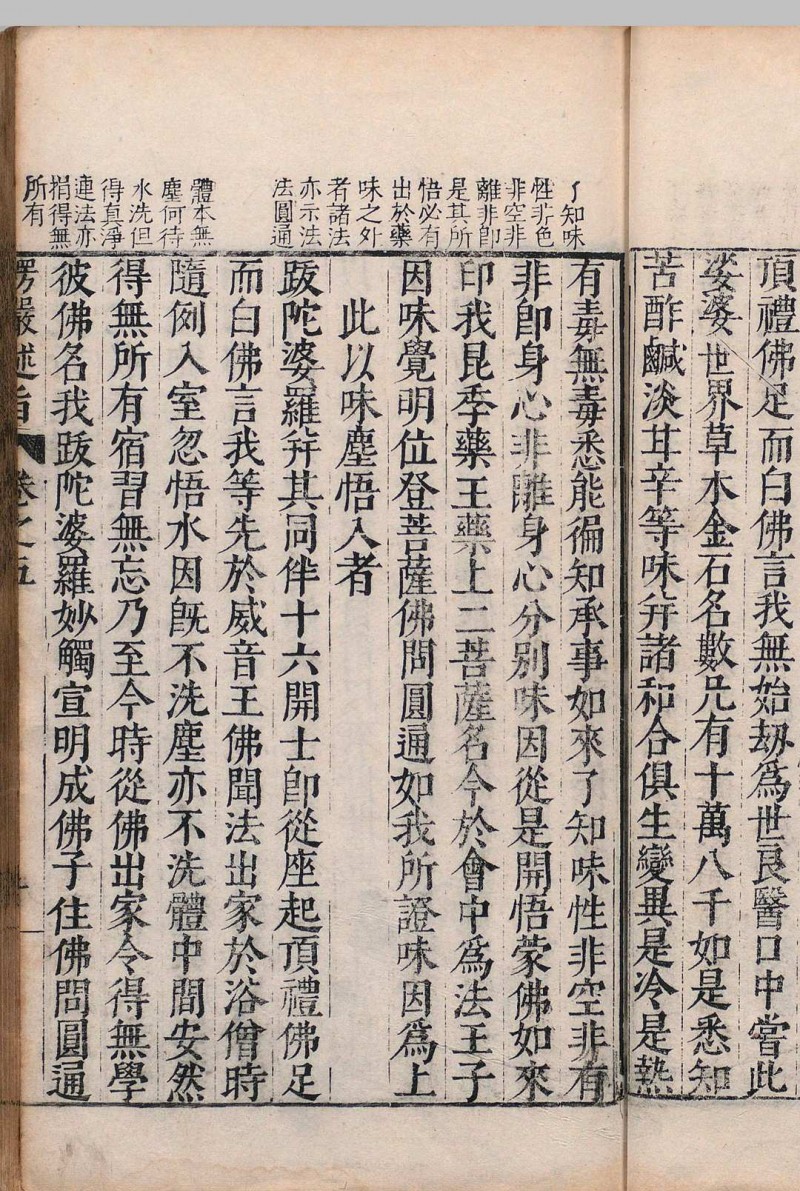 頂禮佛足而白佛言我無始劫爲世良醫口中嘗此
娑婆世界草木金石名數凡有十萬八千如是悉知
苦酢鹹淡甘辛等味并諸和合俱生變異是冷是熱
了知味
性非色
非空非
離非卽
是其所
悟必有
出於藥
味之外
者諸法
亦示法
法圓通
有毒無毒悉能徧知承事如來了知味性非空非有
非卽身心非離身心分別味因從是開悟蒙佛如來
印我昆季藥王藥上二菩薩名今於會中爲法王子
因味覺明位登菩薩佛問圓通如我所證味因爲上
此以味塵悟入者
體本無
塵何待
水洗但
得真淨
連法亦
捐得無
所有
跋陀婆羅并其同伴十六開士卽從座起頂禮佛足
而白佛言我等先於威音王佛聞法出家於浴僧時
隨例入室忽悟水因旣不洗塵亦不洗體中間安然
得無所有宿習無忘乃至今時從佛出家令得無學
彼佛名我跋陀婆羅妙觸宣明成佛子住佛問圓通
楞嚴述旨 卷之五